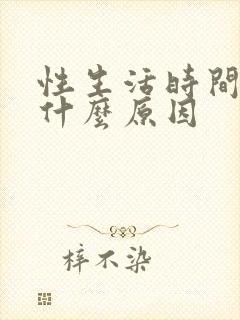 性生活時間
什麼原因
梓不染